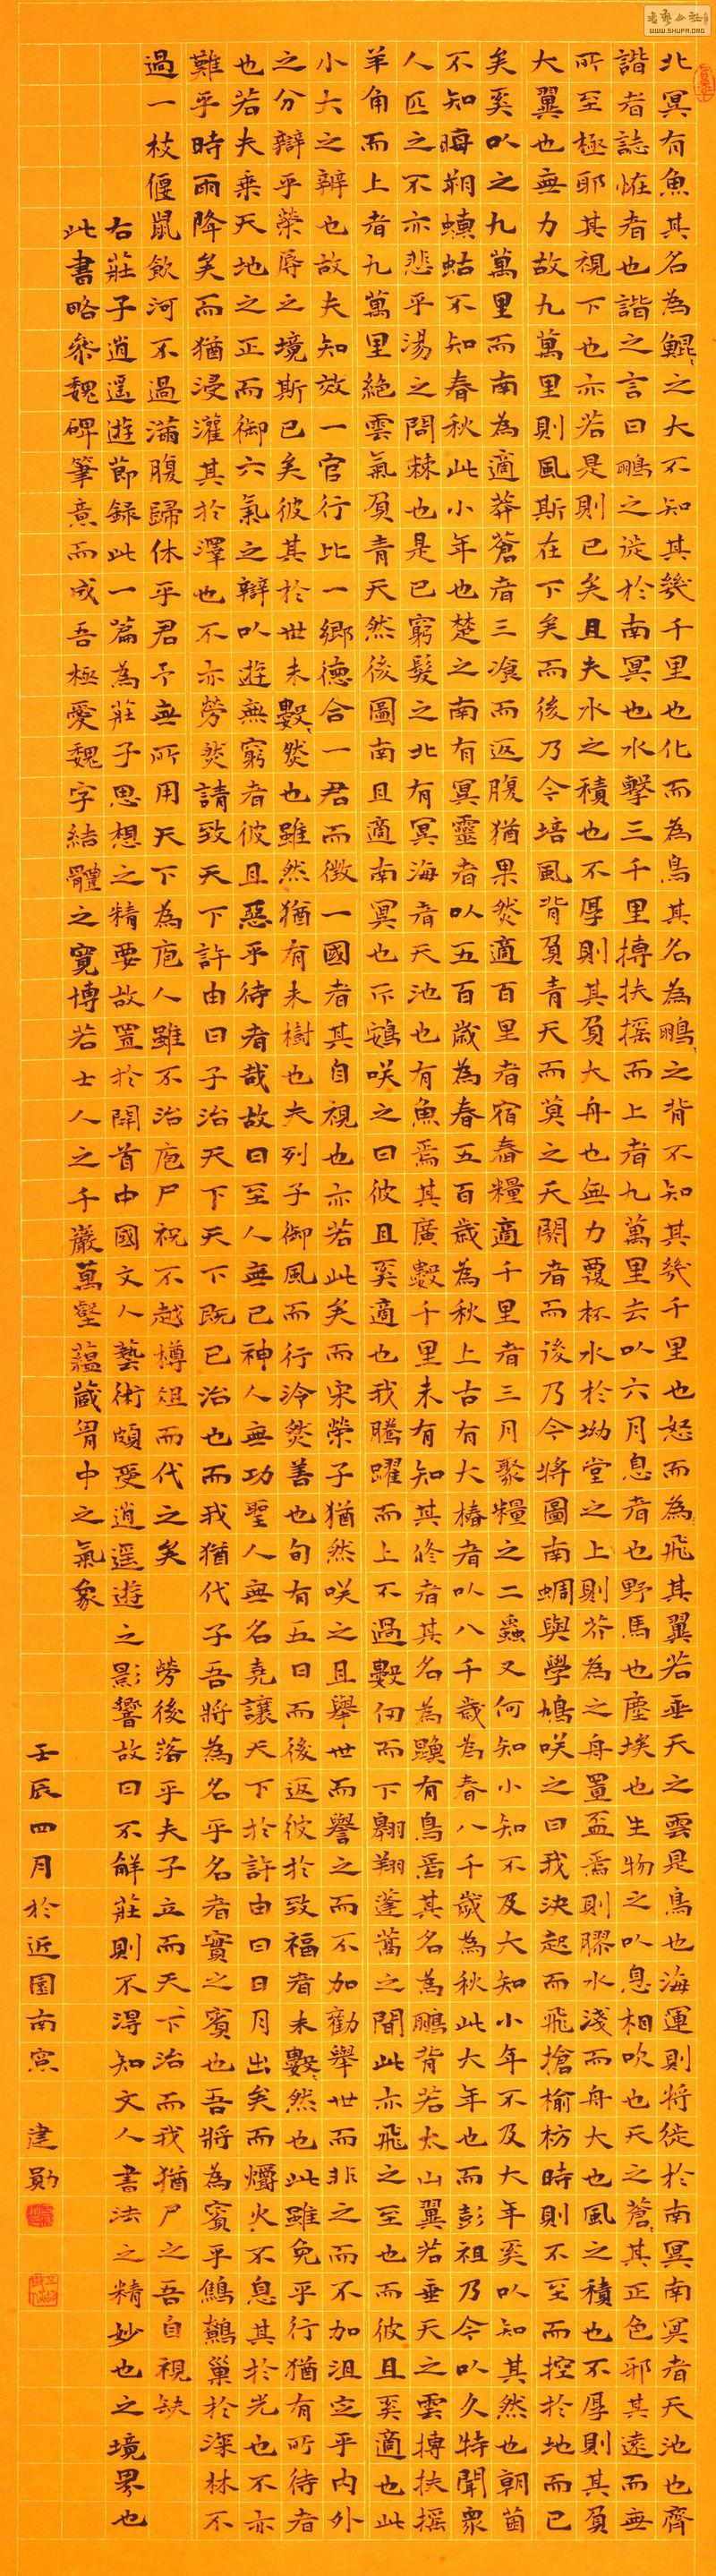 北冥有魚其名為鯤〻之大不知其幾千里也化而為鳥其名為鵬〻之背不知其幾千里也怒而為飛其翼若垂天之雲是鳥也海運則將徙於南冥南冥者天池也齊
諧者誌恠者也諧之言曰鵬之徙於南冥也水擊三千里搏扶搖而上者九萬里去以六月息者也野馬也塵埃也生物之以息相吹也天之蒼〻其正色邪其遠而無
所至極耶其視下也亦若是則已矣且夫水之積也不厚則其負大舟也無力覆杯水於坳堂之上則芥為之舟置盃焉則膠水淺而舟大也風之積也不厚則其負
大翼也無力故九萬里則風斯在下矣而後乃今培風背負青天而莫之夭閼者而後乃今將圖南蜩與學鳩咲之曰我決起而飛搶榆枋時則不至而控於地而已
矣奚以之九萬里而南為適莽蒼者三飡而返腹猶果然適百里者宿舂糧適千里者三月聚糧之二蟲又何知小知不及大知小年不及大年奚以知其然也朝菌
不知晦朔蟪蛄不知春秋此小年也楚之南有冥靈者以五百歲為春五百歲為秋上古有大椿者以八千歲為春八千歲為秋此大年也而彭祖乃今以久特聞眾
人匹之不亦悲乎湯之問棘也是已窮髮之北有冥海者天池也有魚焉其廣數千里未有知其修者其名為鯤有鳥焉其名為鵬背若太山翼若垂天之雲搏扶搖
羊角而上者九萬里絕雲氣負青天然後圖南且適南冥也斥鴳咲之曰彼且奚適也我騰躍而上不過數仞而下翱翔蓬蒿之間此亦飛之至也而彼且奚適也此
小大之辨也故夫知效一官行比一鄉德合一君而徵一國者其自視也亦若此矣而宋榮子猶然咲之且舉世而譽之而不加勸舉世而非之而不加沮定乎內外
之分辯乎榮辱之境斯已矣彼其於世未數〻然也雖然猶有未樹也夫列子御風而行泠然善也旬有五日而後返彼於致福者未數〻然也此雖免乎行猶有所待者
也若夫乘天地之正而御六氣之辯以遊無窮者彼且惡乎待者哉故曰至人無已神人無功聖人無名堯讓天下於許由曰日月出矣而爝火不息其於光也不亦
難乎時雨降矣而猶浸灌其於澤也不亦勞然請致天下許由曰子治天下天下既已治也而我猶代子吾將為名乎名者實之賓也吾將為賓乎鷦鷯巢於深林不
過一枝偃鼠飲河不過滿腹歸休乎君予無所用天下為庖人雖不治庖尸祝不越樽俎而代之矣 勞後落乎夫子立而天下治而我猶尸之吾自視缺
右莊子逍遙遊節錄此一篇為莊子思想之精要故置於開首中國文人藝術頗受逍遙遊之影響故曰不解莊則不得知文人書法之精妙也之境界也
此書略參魏碑筆意而成吾極愛魏字結體之寬博若士人之千巖萬壑蘊藏胷中之氣象
壬辰四月於近園南窗 建勛
WWW.SHUFA.ORG